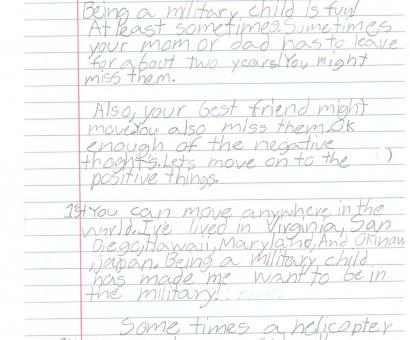 Being a military child is fun!
At least sometimes. Sometimes
your mom or dad has to leave
for about two years! You might
miss them.
Also, your best friend might
move. You also miss them. Ok
enough of the negative
thoghts. Lets move on to the
positive things.
1st You can move anywhere in the
world. I've lived in Virginia, San
Diego, Hawaii, Maryland, And Okinaw
,japan. Being a military child
has made me want to be in
the military!
Some times a helicopter